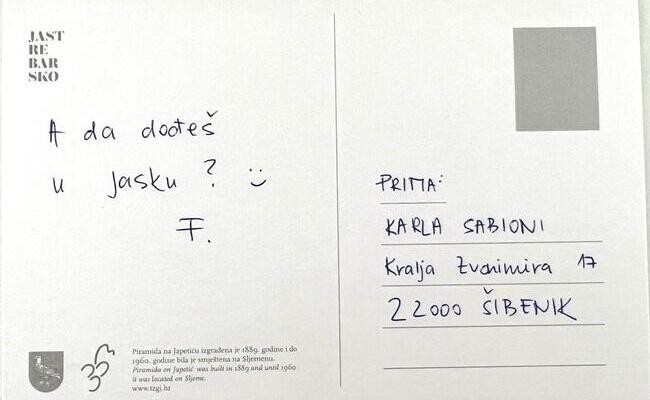 JAST
RE
BAR
SKO
A da dođeš
u Jasku ? :)
F.
PRIMA:
KARLA SABIONI
Kralja Zvonimira 17
22000 ŠIBENIK
Piramida na Japetiću izgrađena je 1889. godine i do
1960. godine bila je smještena na Sljemenu.
Piramida on Japetić was built in 1889 and until 1960
it was located on Sljeme.
www.tzgj.hr